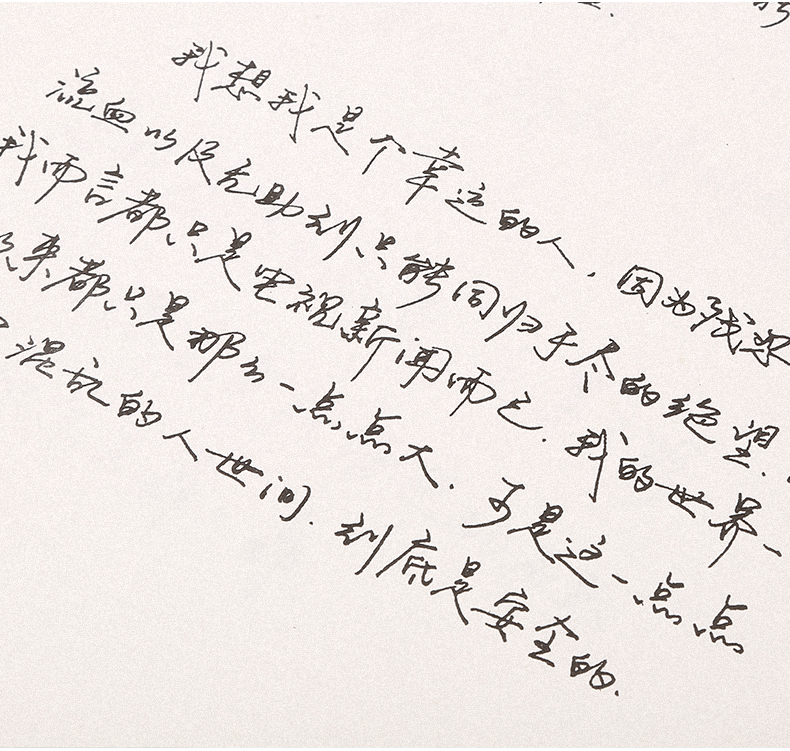 我想我是个幸运的人.因为残
流血以及无助到只能同归于尽的绝望.
我而言都只是电视新闻而已.我的世界一
来都只是那么一点点大.可是这一点点
混乱的人世间.到底是安全的.